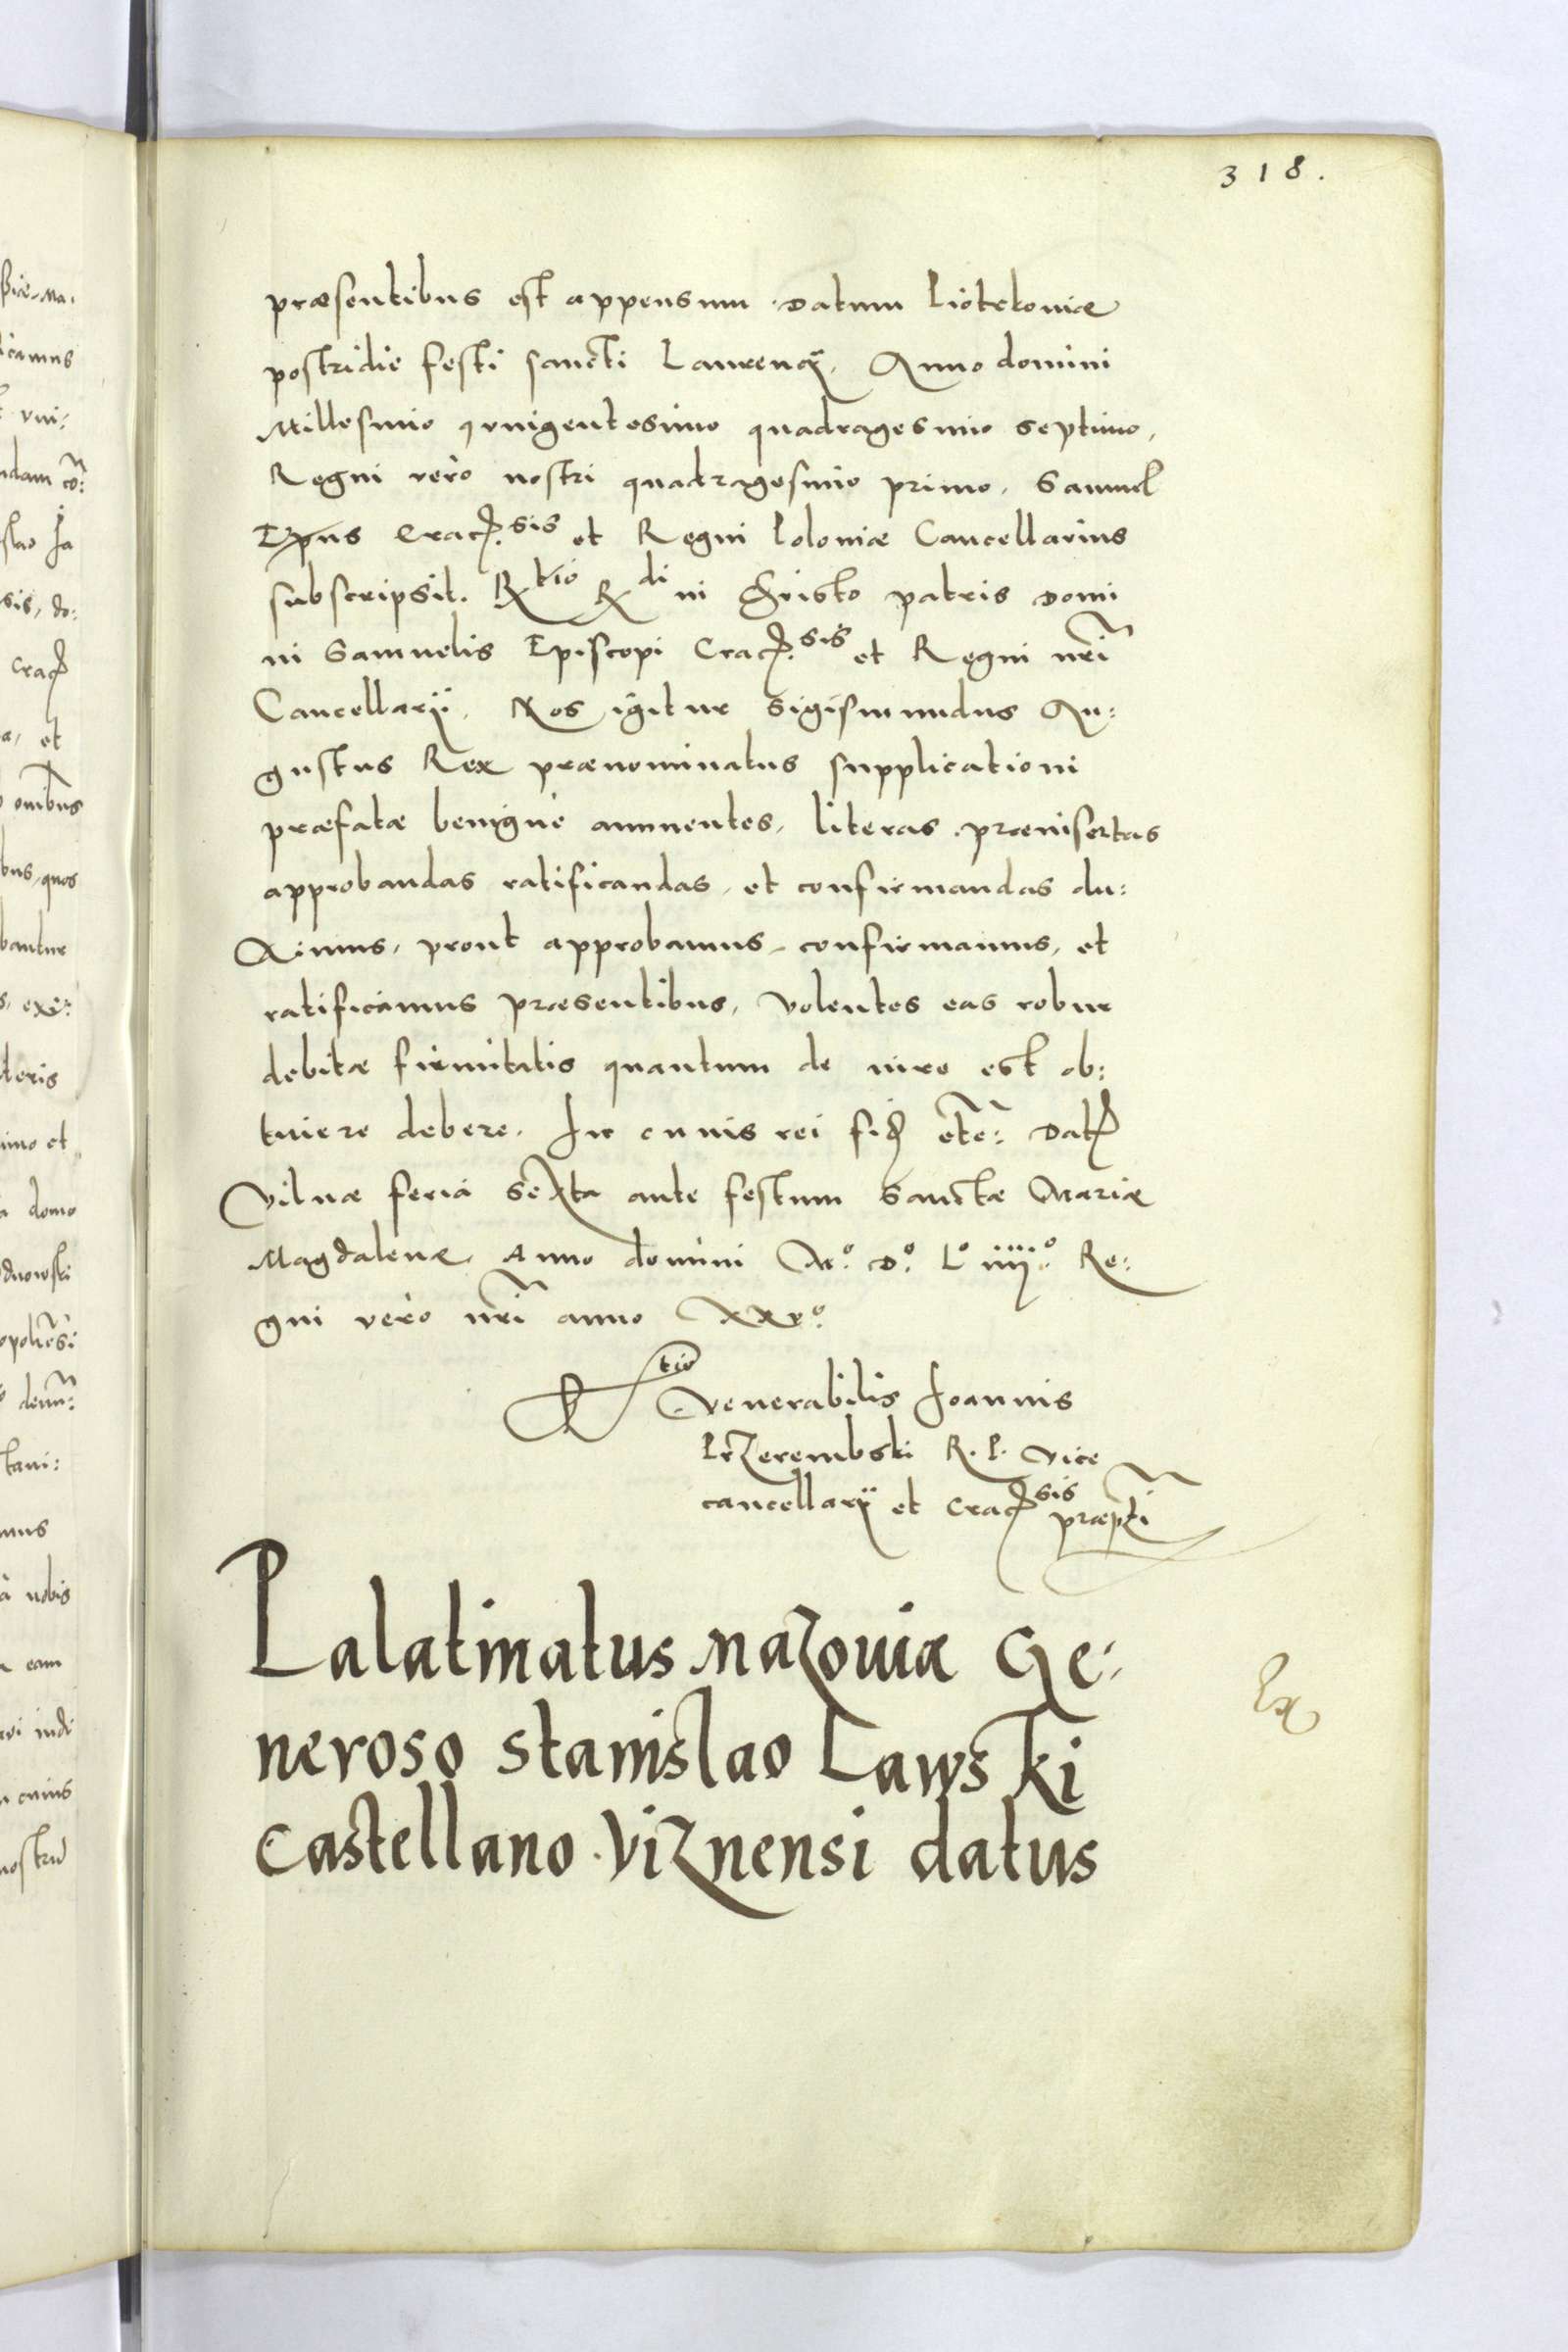 318.
præsentibus est appensum. Datum Piotrkoviæ
postridie festi sancti Laurencÿ. Anno domini
Millesimo quingentesimo quadragesimo septimo,
Regni vero nostri quadragesimo primo. Samuel
Epus Crac.sis et Regni Poloniæ Cancellarius
subscripsit. Rtio Rdi in Christo patris Domi
ni Samuelis Episcopi Crac.sis et Regni nri
Cancellarÿ. Nos igitur Sigismundus Au:
gustus Rex prænominatus supplicationi
præfatæ benigne annuentes, literas præinsertas
approbandas ratificandas, et confirmandas du:
ximus, prout approbamus, confirmamus, et
ratificamus præsentibus, volentes eas robur
debitæ firmitatis quantum de iure est ob:
tinere debere. In cuius rei fid etc: Dat
Vilnæ feria sexta ante festum Sanctæ Mariæ
Magdalenæ. Anno domini Mo. Do. Lo iiijo. Re:
gni vero nri anno xxvo.
Rtio Venerabilis Ioannis
Przerembski R. P. Vice
cancellarÿ et Cracsis præpti
Palatinatus Mazoviæ Ge:
neroso Stanislao Lawski
Castellano Viznensi datus
Ex